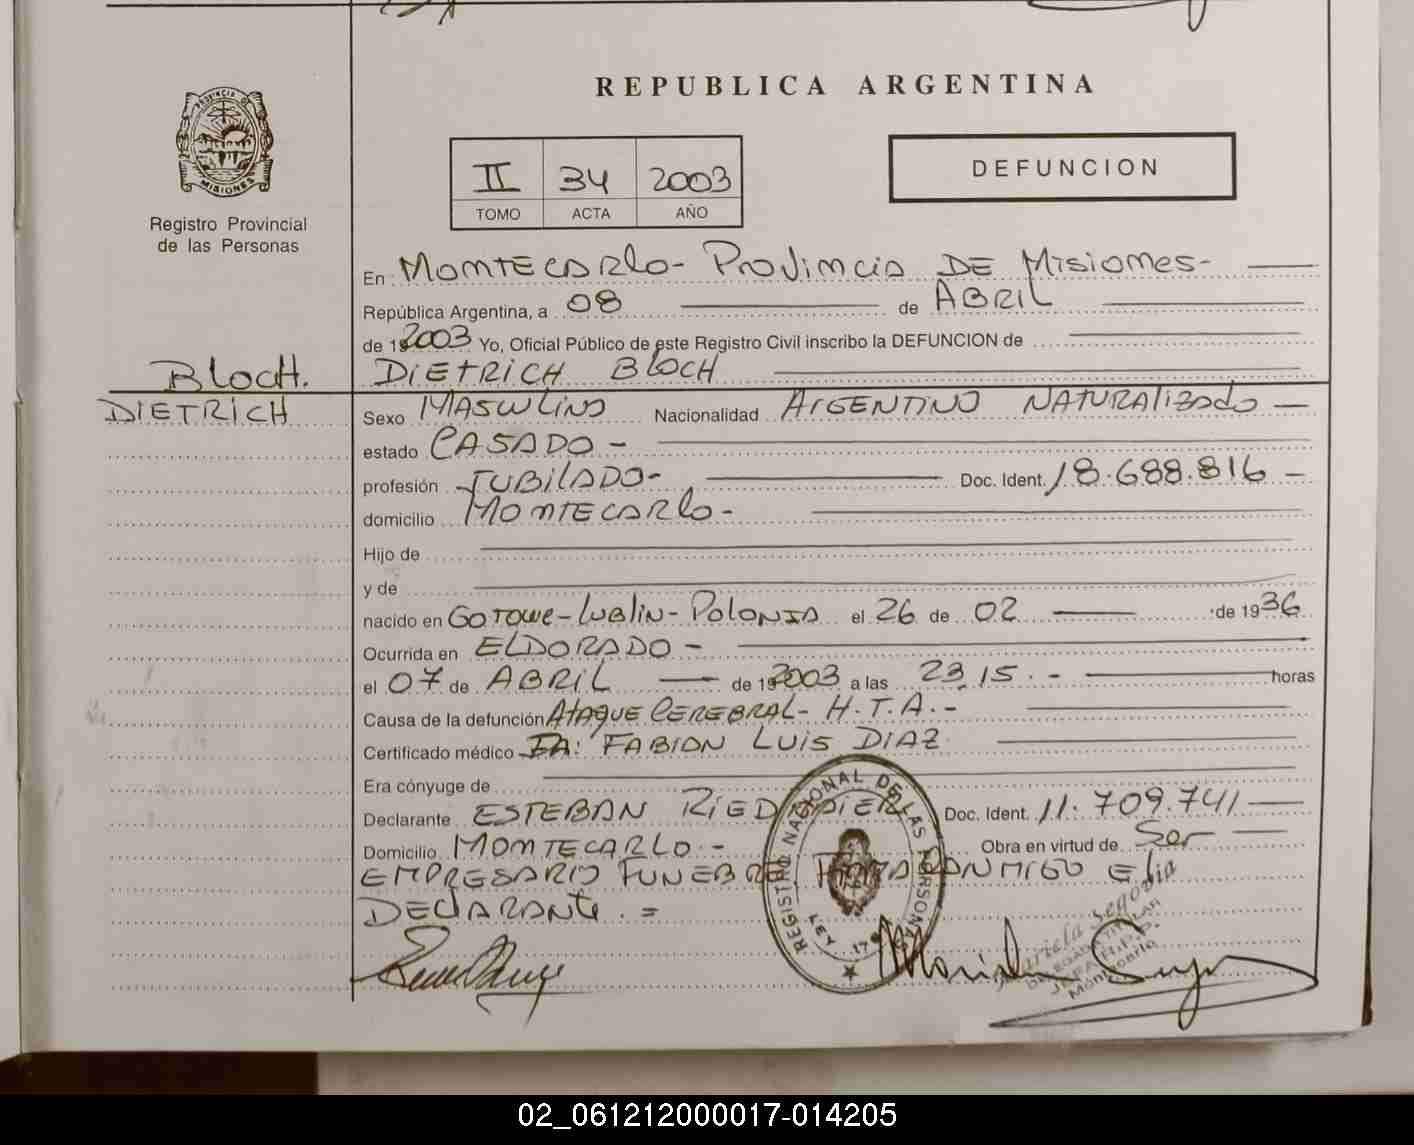 REPUBLICA ARGENTINA
PROVINCIA DE
MISIONES
Registro Provincial
de las Personas
II 34 2003
TOMO ACTA AÑO
DEFUNCION
En MONTECARLO - PROVINCIA DE MISIONES -
República Argentina, a 08 de ABRIL
de 19 2003 Yo, Oficial Público de este Registro Civil inscribo la DEFUNCION de
BLOCH. DIETRICH BLOCH
DIETRICH Sexo MASCULINO Nacionalidad ARGENTINO NATURALIZADO -
estado CASADO -
profesión JUBILADO - Doc. Ident. 18.688.816 -
domicilio MONTECARLO -
Hijo de
y de
nacido en GOTOWE - LUBLIN - POLONIA el 26 de 02 de 1936
Ocurrida en ELDORADO -
el 07 de ABRIL de 19 2003 a las 23,15. - horas
Causa de la defunción ATAQUE CEREBRAL - H.T.A. -
Certificado médico FABIAN LUIS DIAZ
Era cónyuge de
Declarante ESTEBAN Doc. Ident. 11.709.741
Domicilio MONTECARLO - Obra en virtud de Ser
EMPRESARIO FUNEBRE. FIRMA CONMIGO El
DECLARANTE. =
REGISTRO NACIONAL DE LAS PERSONAS
LEY 17
Segovia
Montecarlo
02_061212000017-014205